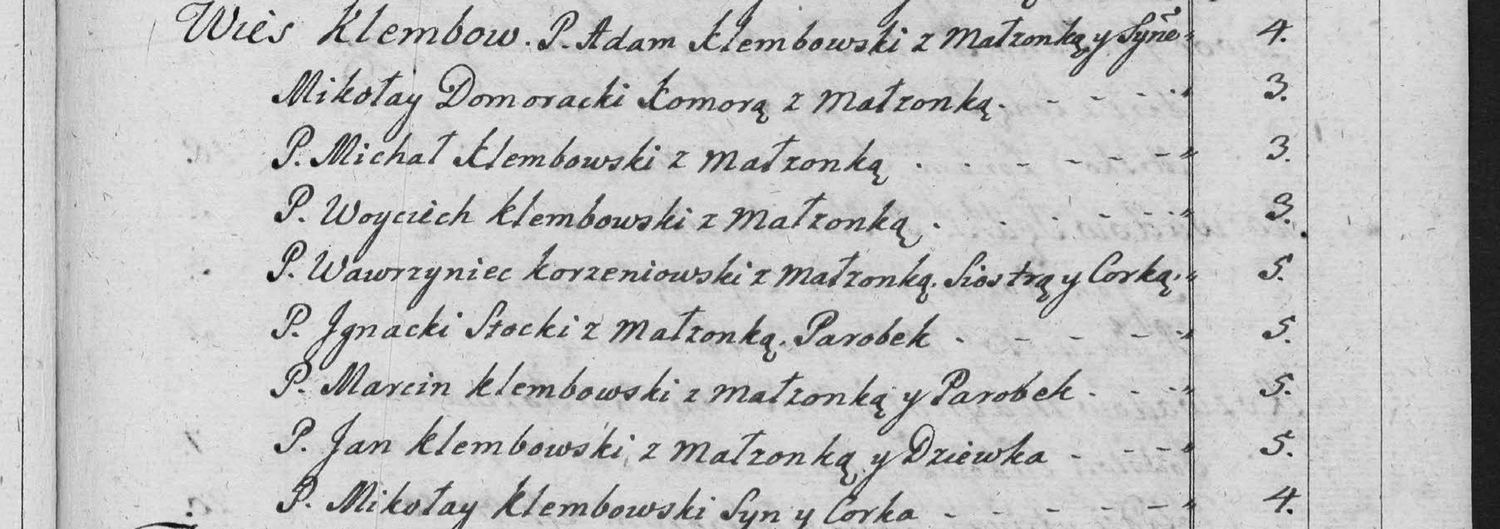 Wieś Klembow. P. Adam Klembowski z Małzonką y Syñe " 4.
Mikołay Domoracki Komorą z Małzonką. - - - - " 3.
P. Michał Klembowski z Małzonką . - - - - " 3.
P. Woyciech Klembowski z Małzonką . - - - - " 3.
P. Wawrzyniec Korzeniowski z Małzonką. Siostrą y Corką. " 5.
P. Jgnacki Stocki z Małzonką. Parobek . - - - - " 5.
P. Marcin Klembowski z Małzonką y Parobek - - - " 5.
P. Jan Klembowski z Małzonką y Dziewka - - - - " 5.
P. Mikołay Klembowski Syn y Corka - - - - - " 4.